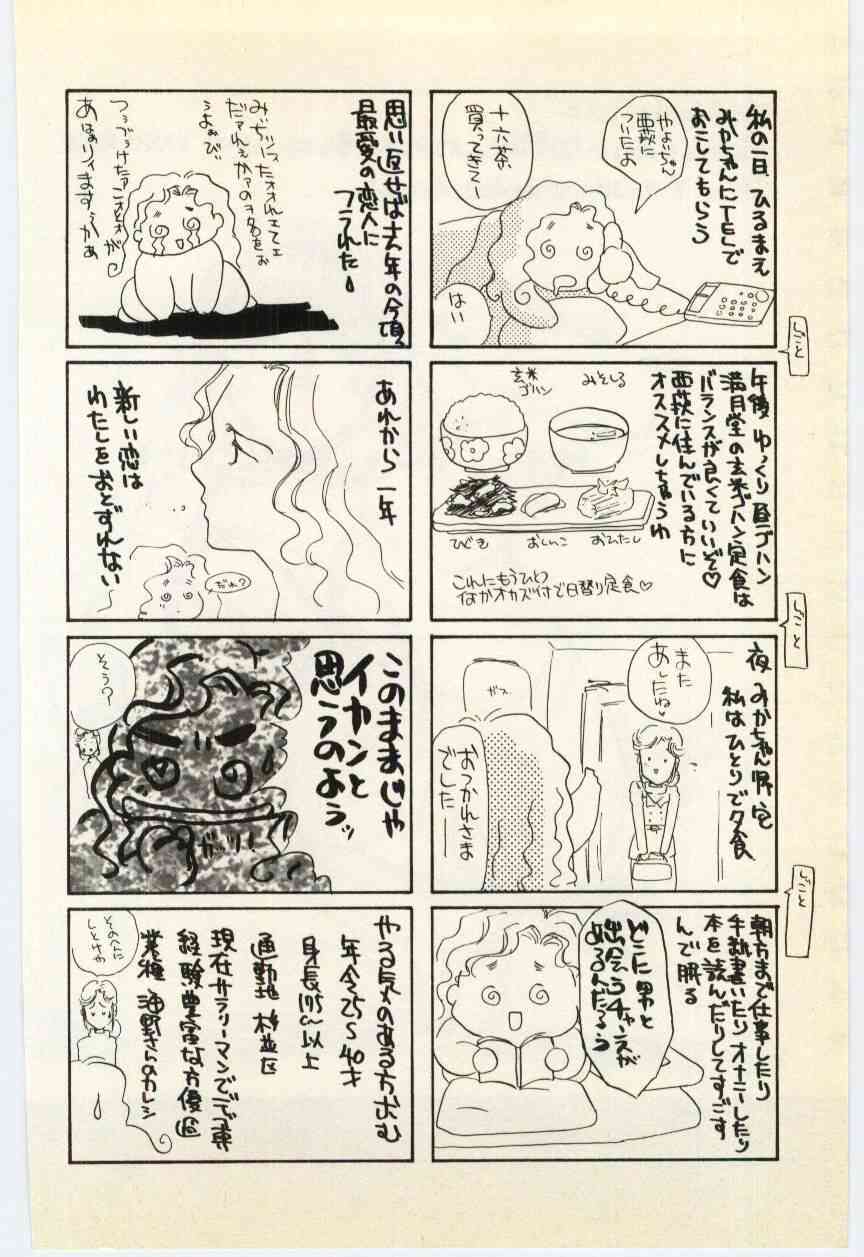 私の一日 ひるまえ
みかちゃんにTELで
おこしてもらう
やよいちゃん
西荻に
ついたよ
十六茶
買ってきてー
はい
しごと
午後 ゆっくり昼ゴハン
満月堂の玄米ゴハン定食は
バランスが良くていいぞ♡
西荻に住んでいる方に
オススメしちゃうわ
みそしる
玄米
ゴハン
ひじき
おしんこ
おひたし
これにもうひとつ
なんかオカズ付で日替り定食♡
しごと
夜 みかちゃん帰宅
私はひとりで夕食
また
あしたね♡
ガス
おつかれさま
でしたー
しごと
朝方まで仕事したり
手紙書いたりオナニーしたり
本を読んだりしてすごす
んで眠る
どこに男と
出会うチャンスが
あるんだろう
思い返せば去年の今頃、
最愛の恋人に
フラれた
あれから一年
新しい恋は
わたしをおとずれない
だれ?
このままじゃ
イカンと
思うのよう
ガッ!!
そう?
やる気のある方求む
年令25〜40才
身長175cm以上
通勤地 杉並区
現在サラリーマンで
経験豊富な方優遇
業種
さんのカレシ
そのへんに
しとけや